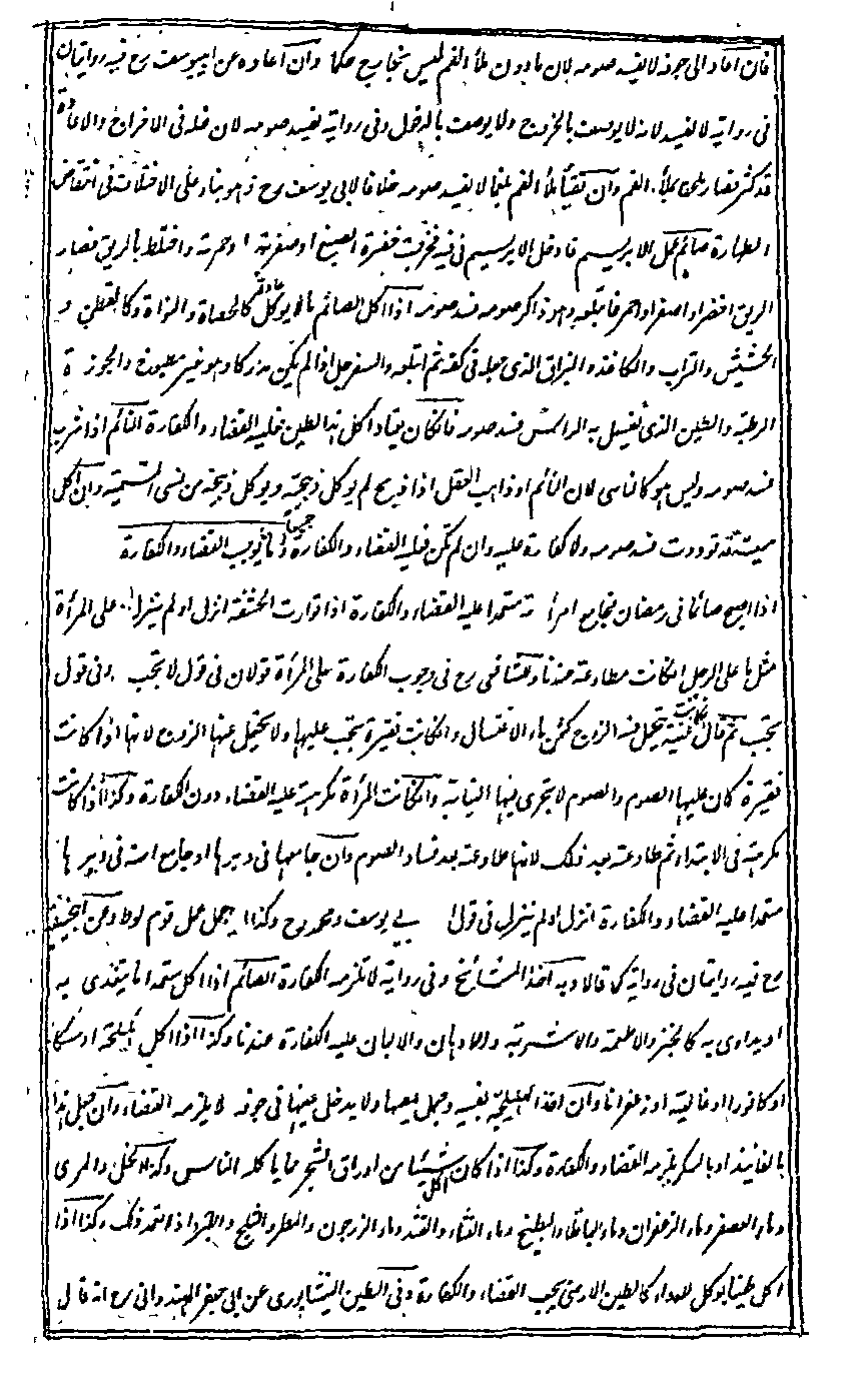 فان اعاد الى جوفه لا يفسد صومه لان مادون ملأ الفم ليس بخارج حكما وان اعاده عن ابيوسف رح فيه روايتان
فى رواية لا يفسد لانه لا يوصف بالخروج ولا يوصف بالدخول وفى رواية يفسد صومه لان فعله فى الاخراج والاعادة
قد كثر فصار ملحقا بملأ الفم وان تقيأ ملأ الفم بلغما لا يفسد صومه خلافا لابى يوسف رح وهو بناء على الاختلاف فى انتقاض
الطهارة صائم عمل الابريسم فادخل الابريسم فى فيه فخرجت خضرة الصبغ او صفرته او حمرته واختلط بالريق فصار
الريق اخضر او اصفر او احمر فابتلعه وهو ذاكر صومه فسد صومه اذا اكل الصائم مالا يوكل عادة كالحصاة والنواة وكالقطن و
الحشيش والتراب والكاغذ والبزاق الذى جعله فى كفه ثم ابتلعه والسفرجل اذا لم يكن مدركا وهو غير مطبوخ والجوزة
الرطبة والطين الذى يغسل به الراس فسد صومه فان كان يعتاد اكل هذا الطين فعليه القضاء والكفارة النائم اذا شرب
فسد صومه وليس هو كالناسى لان النائم او ذاهب العقل اذا ذبح لم يوكل ذبيحته ويوكل ذبيحة من نسى التسمية وان اكل
ميتة قد تودت فسد صومه ولا كفارة عليه وان لم تكن فعليه القضاء والكفارة جميعا فيما يوجب القضاء والكفارة
اذا اصبح صائما فى رمضان فجامع امرأته متعمدا عليه القضاء والكفارة اذا توارت الحشفة انزل او لم ينزل على المرأة
مثل ما على الرجل ان كانت مطاوعة عندنا وللشافعى رح فى وجوب الكفارة على المرأة قولان فى قول لا تجب وفى قول
تجب ثم قال ان كانت غنية يتحمل عنها الزوج كثمن ماء الاغتسال وان كانت فقيرة يجب عليها ولا يتحمل عنها الزوج لانها اذا كانت
فقيرة كان عليها الصوم والصوم لا تجرى فيها النيابة وان كانت المرأة مكرهة عليه القضاء دون الكفارة وكذا اذا كانت
مكرهة فى الابتداء ثم طاوعته بعد ذلك لانها طاوعته بعد فساد الصوم وان جامعها فى دبرها او جامع امته فى دبرها
متعمدا عليه القضاء والكفارة انزل او لم ينزل فى قول ابى يوسف ومحمد رح وكذا الرجل عمل عمل قوم لوط وعن ابيحنيفة
رح فيه روايتان فى رواية كما قالا وبه اخذ المشائخ وفى رواية لا تلزمه الكفارة الصائم اذا اكل متعمدا ما يتغذى به
او يداوى به كالخبز والاطعمة والاشربة والادهان والالبان عليه الكفارة عندنا وكذا اذا اكل هليلجة او مسكا
او كافورا او غالية او زعفرانا وان اخذ الهليلجة بفيه وجعل يمصها ولا يدخل عينها فى جوفه لا يلزمه القضاء وان فعل هذا
بالفانيذ او بالسكر يلزمه القضاء والكفارة وكذا اذا كان اكل شيئا من اوراق الشجر مما ياكله الناس وكذا الخل والمرى
وماء العصفر وماء الزعفران وماء الباقلا والبطيخ وماء القثاء والقثد وماء الزرجون والمطر والثلج والبرد اذا تعمد ذلك وكذا اذا
اكل طينا يوكل للدواء كالطين الارمنى يجب القضاء والكفارة وفى الطين النيشاپورى عن ابى جعفر الهندوانى رح انه قال